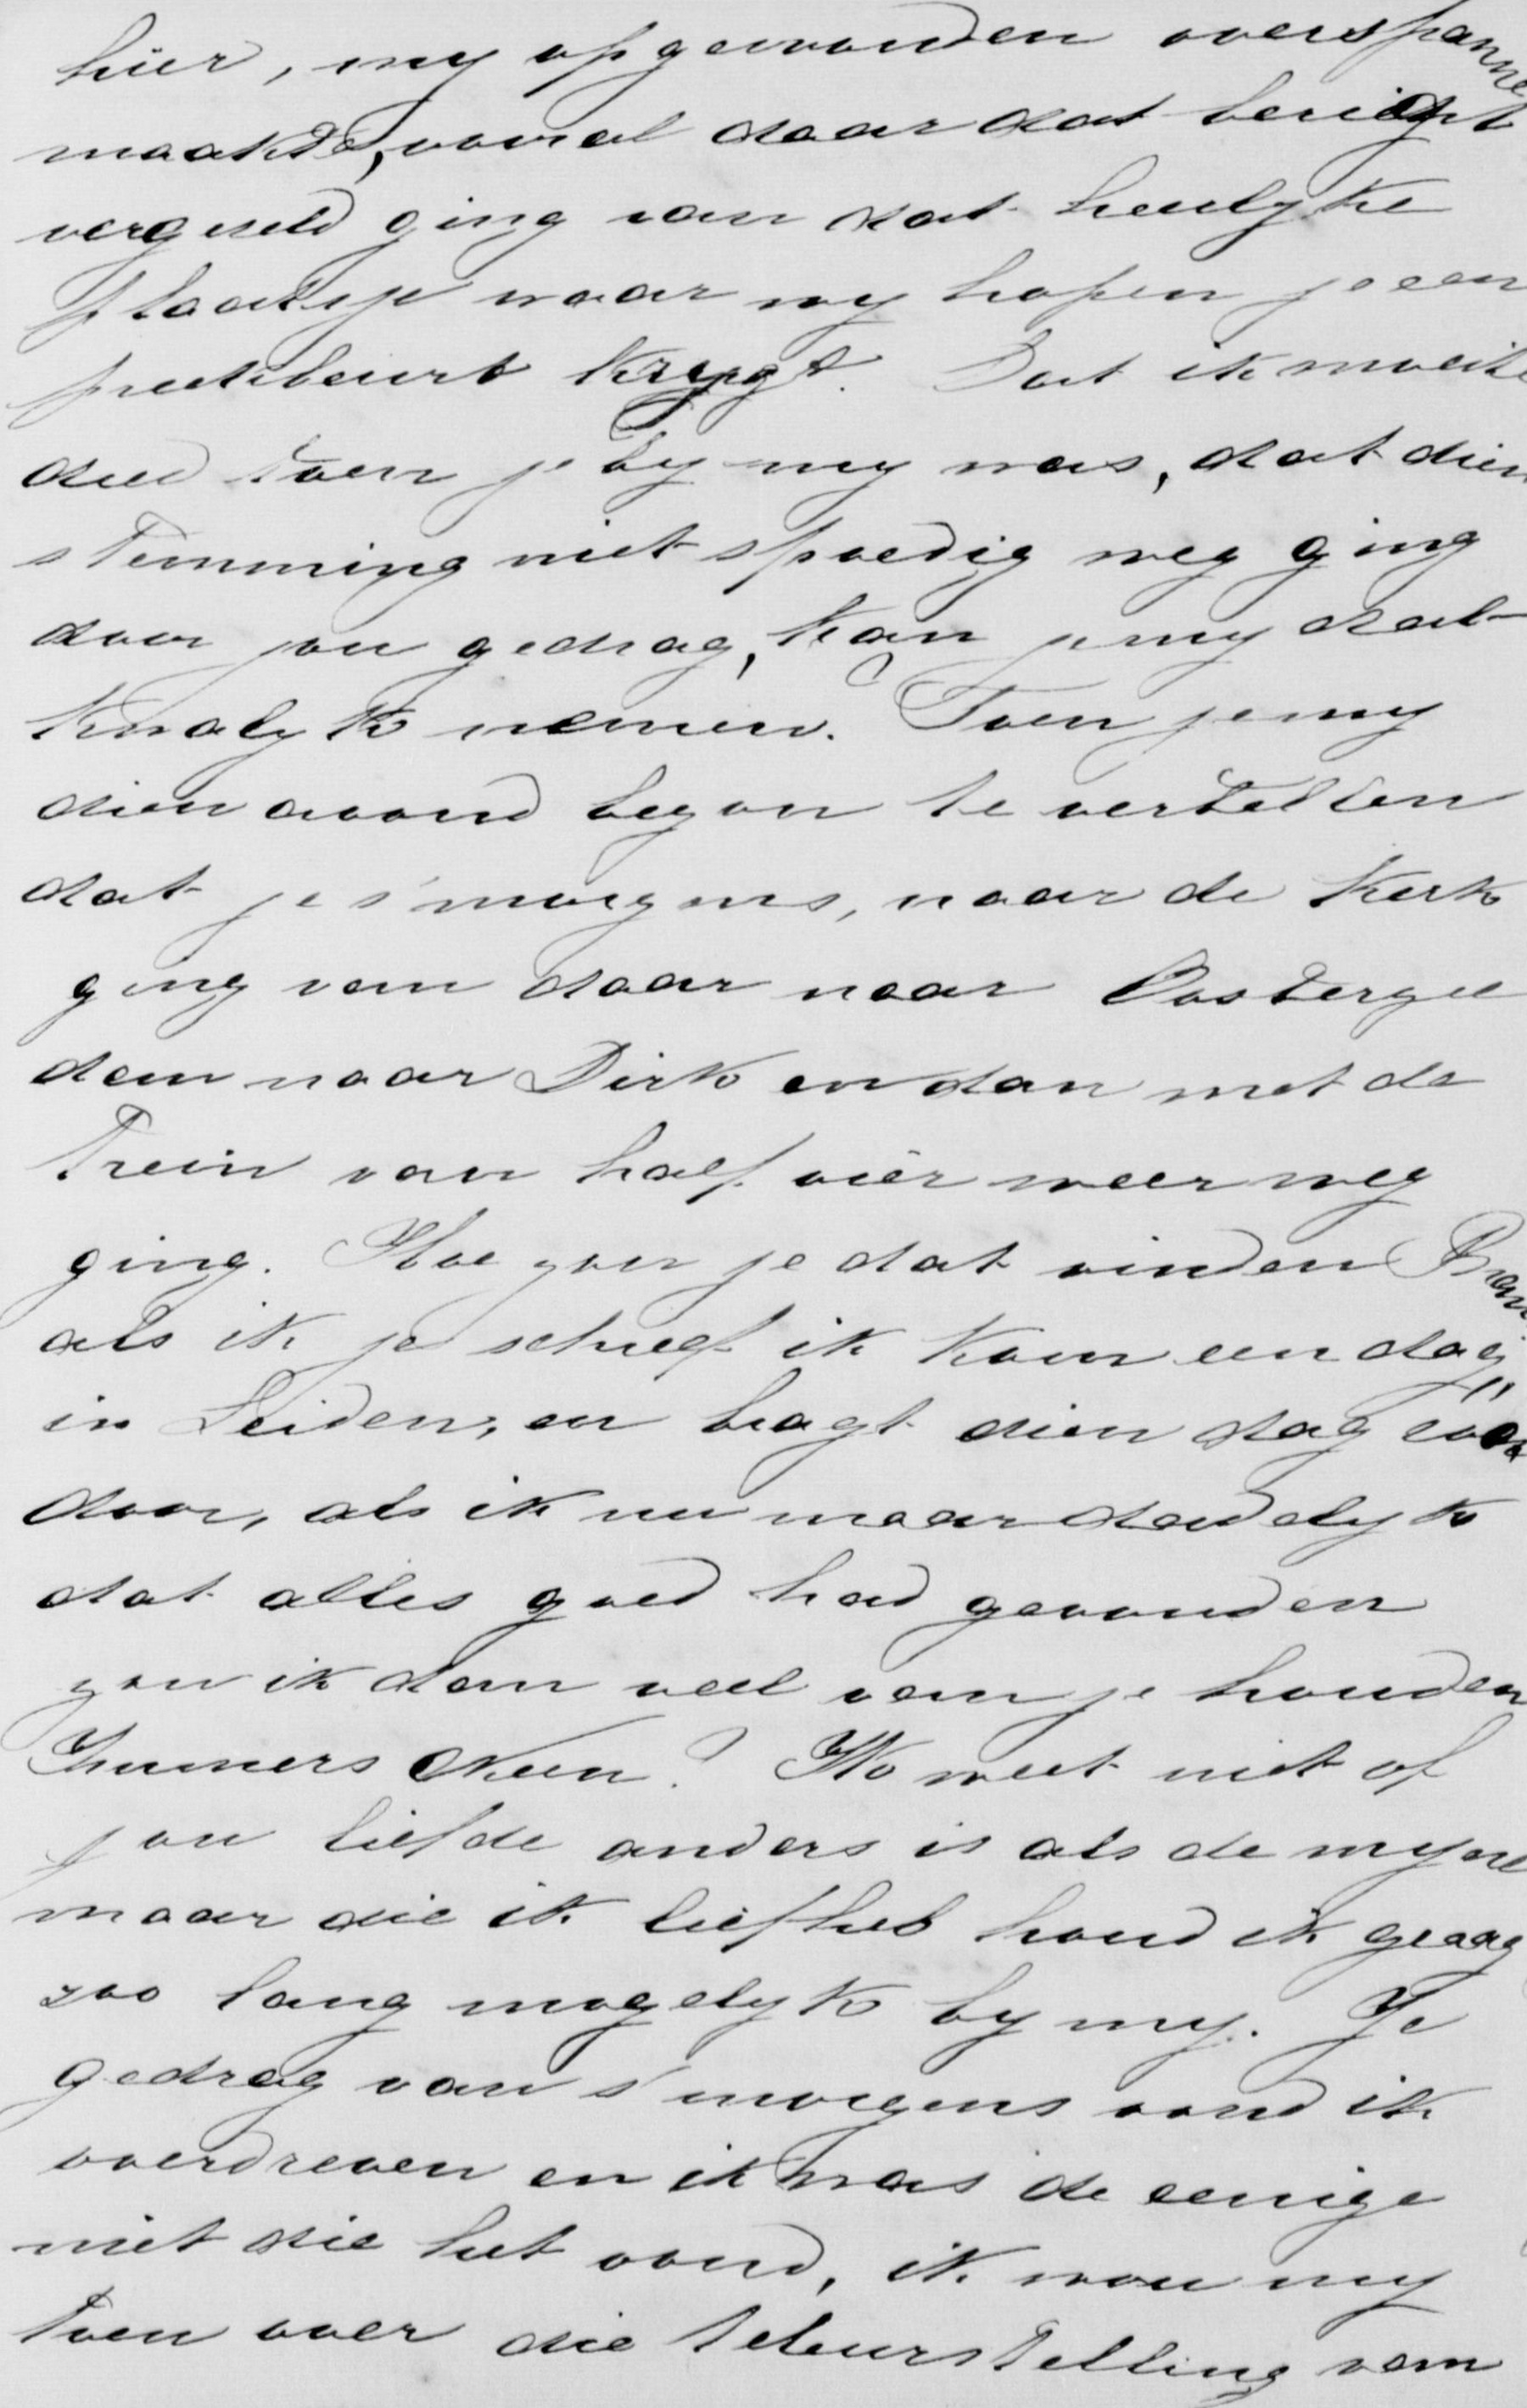 hier, my opgewonden overspanne
maakte, vooral daar dat berigt
vergeseld ging van dat heerlyke
plaatsje waar wy hopen je een
preekbeurt krygt. Dat ik moeite
deed toen je by my was, dat die
stemming niet spoedig weg ging
door jou gedrag, kan je my dat
kwalyk nemen. Toen je my
dien avond begon te vertellen
dat je s'morgens, naar de Kerk
ging van daar naar Oostergee
dan naar Dirk en dan met de
Trein van half vier weer weg
ging. Hoe zou je dat vinden Bram
als ik je schreef ik kom een dag
in Leiden, en bragt dien dag zoo
door, als ik nu maar dadelyk
dat alles goed had gevonden
zou ik dan veel van je houden
Immers Neen? Ik weet niet of
jou liefde anders is als de myne
maar die ik liefheb houd ik graag
zoo lang mogelyk by my. Je
gedrag van s'morgens vond ik
overdreven en ik was de eenige
niet die het vond, ik wou my
toen over die teleurstelling van